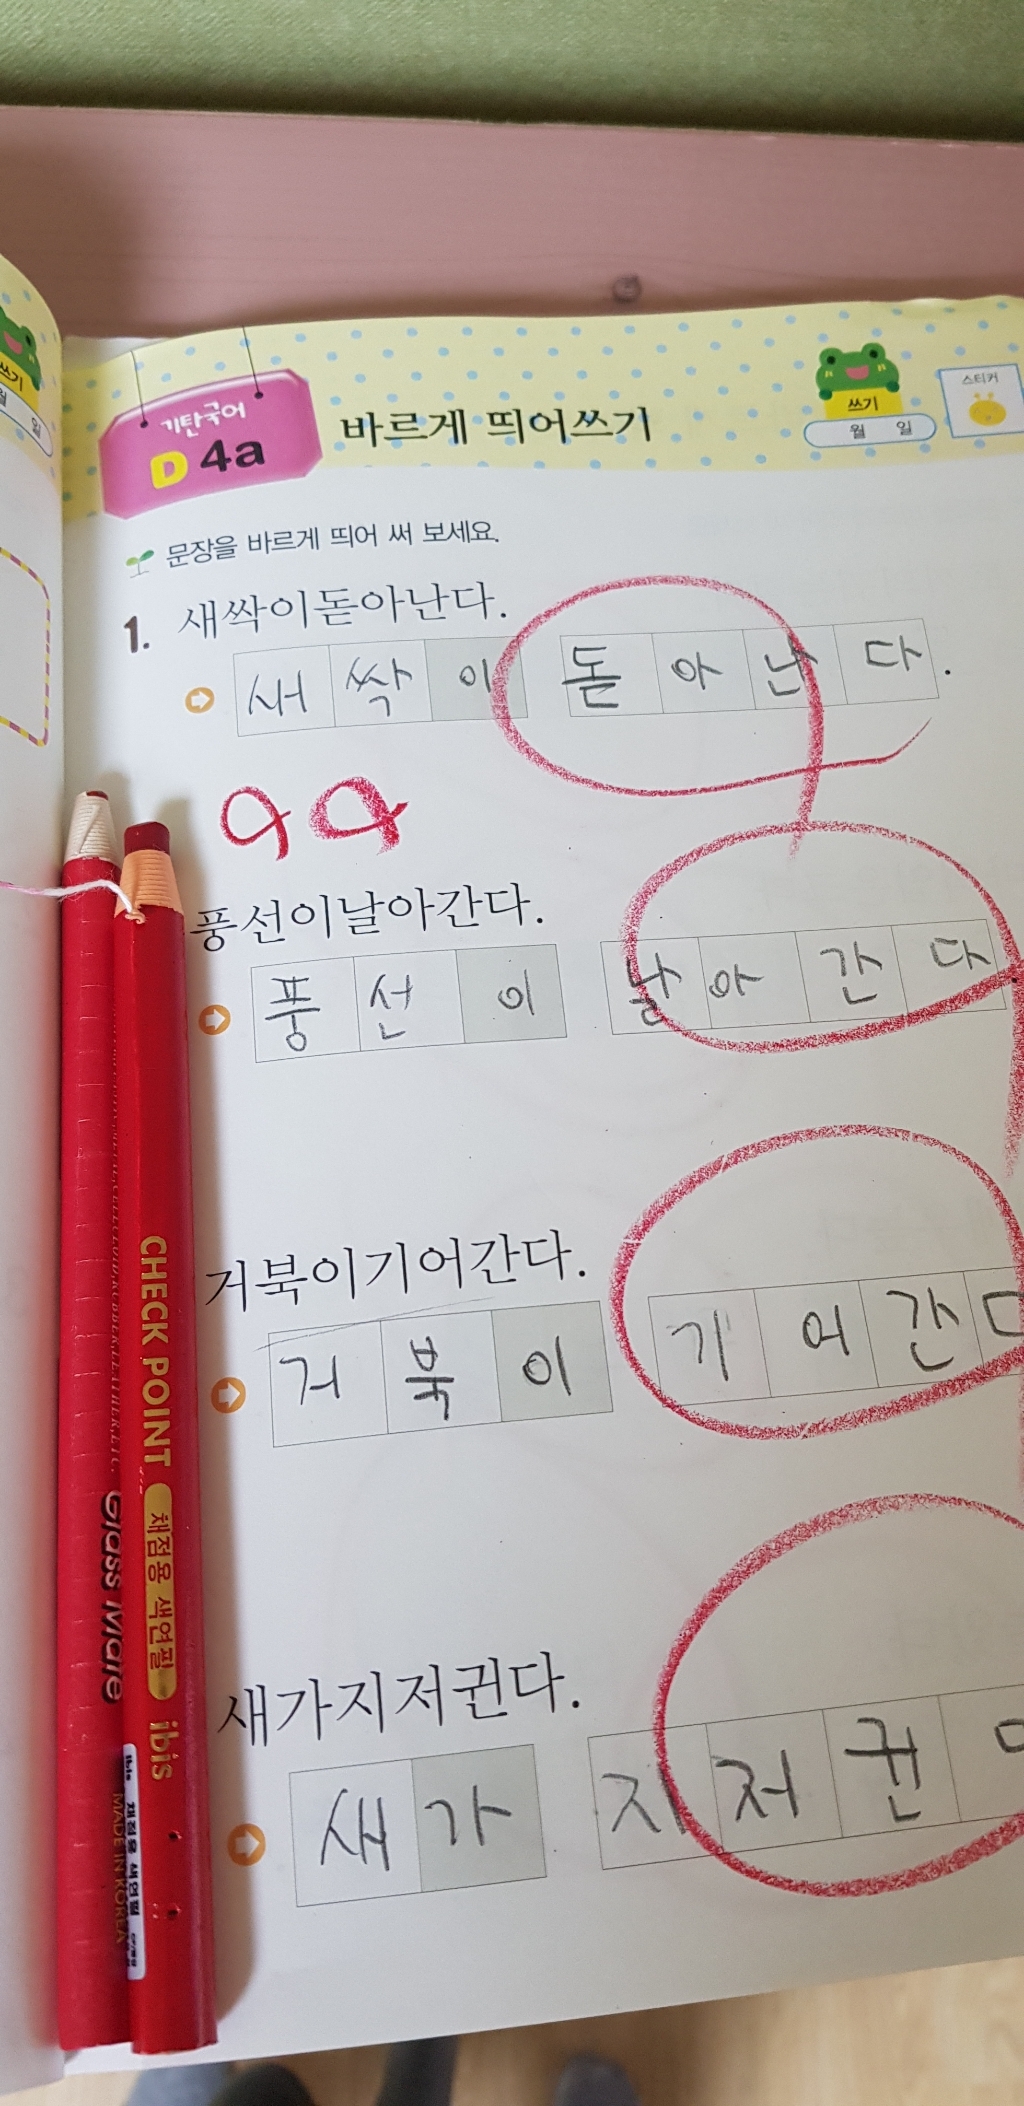 쓰기
월 일
기탄국어
D 4a
바르게 띄어쓰기
쓰기
월 일
스티커
문장을 바르게 띄어 써 보세요.
1. 새싹이돋아난다.
새싹이 돋아난다.
풍선이날아간다.
풍선이 날아간다
거북이기어간다.
거북이 기어간
새가지저귄다.
새가 지저귄
CHECK POINT 채점용 색연필 ibis
Glass Marc
ibis 채점용 색연필
MADE IN KOREA